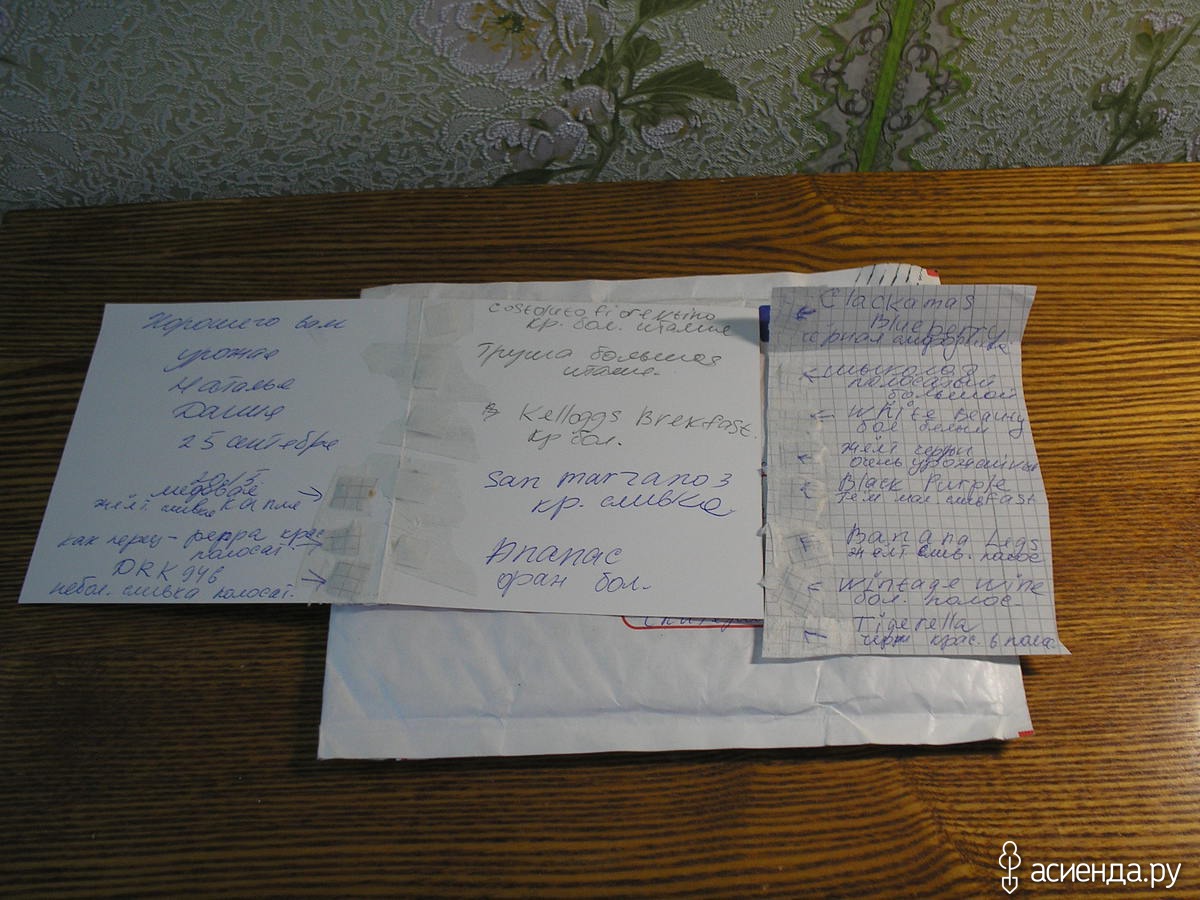 Хорошего вам
урожая
Наталья
Дания
25 сентября
2015
медовая
капля
жёлт. сливка
как перец - pepra крас
полосат.
DRK 946
небол. сливка полосат.
Costoluto fiorentino
кр. бол. италия
Груша большая
италия.
Kelloggs Brekfast.
кр бол.
San marzano 3
кр. сливка
Ананас
оран бол.
Clackamas
Blueberry
чёрная
полосатый
большой
White Beauty
бол белый
жёлт черри
очень урожайный
Black Purple
тём мал. слив
Banana Legs
жёлт слив. полос
Wintage Wine
бол. полос.
Tigerella
черн крас. в полос.
асиенда.ру